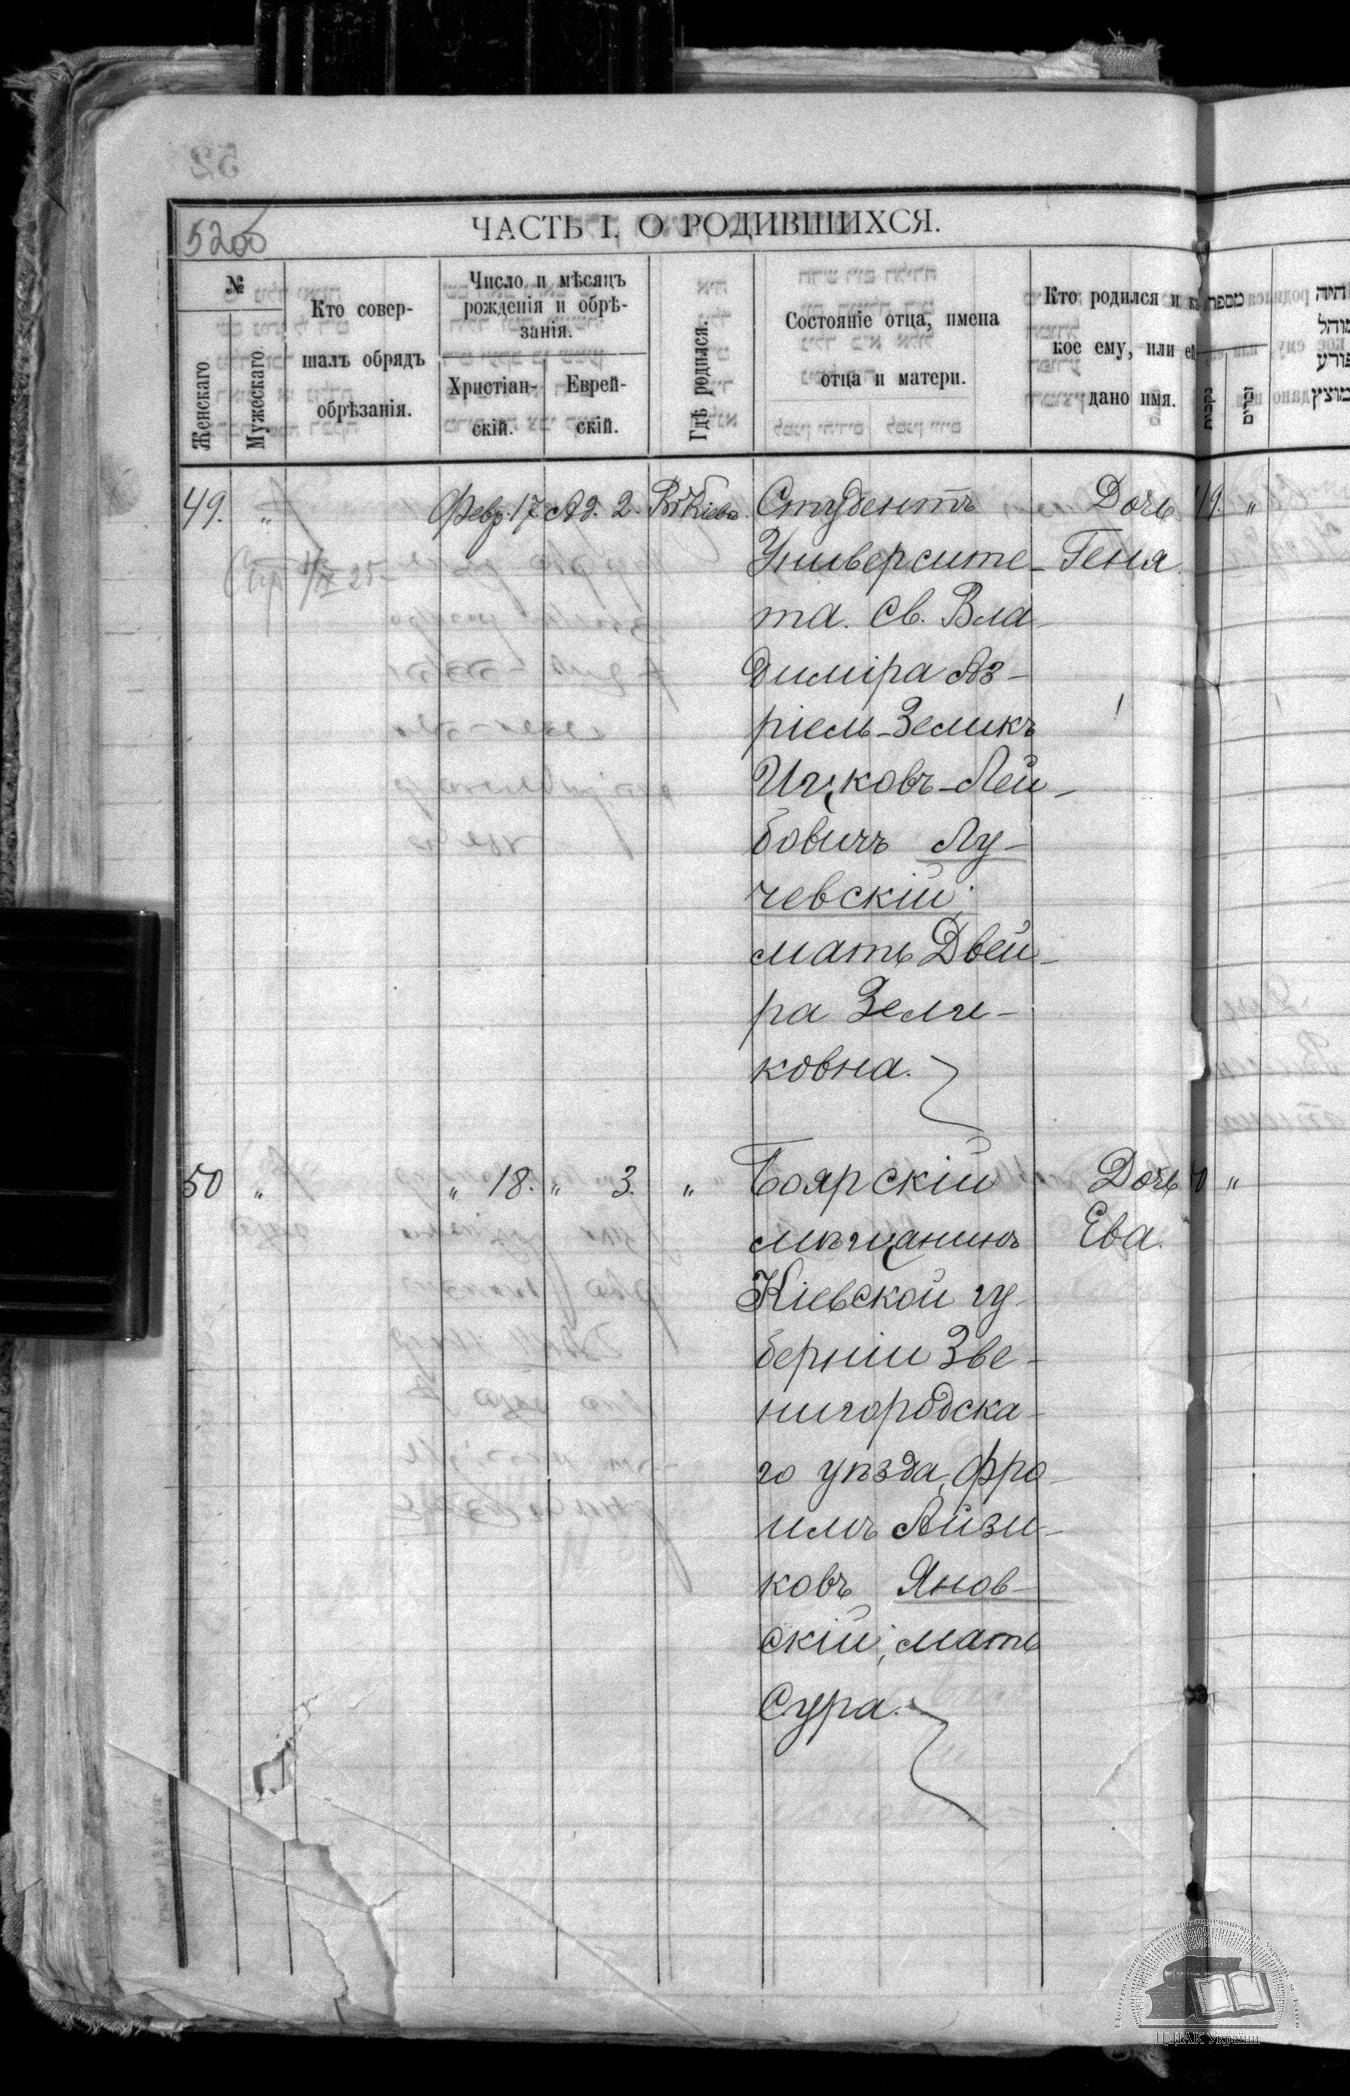 52об
ЧАСТЬ I. О РОДИВШИХСЯ.
№
Женскаго
Мужескаго
Кто совер-
шалъ обрядъ
обрѣзанія.
Число и мѣсяцъ
рожденія и обрѣ-
занія.
Христіан-
скій.
Еврей-
скій.
Гдѣ родился.
Состояніе отца, имена
отца и матери.
Кто родился и ка
кое ему, или ей
дано имя.
49. " Февр. 17. Ад. 2. Въ Кіевѣ. Студентъ Дочь
Университе- Геня.
та. Св. Вла-
диміра Аз-
ріель-Зеликъ
Ицковъ-Лей-
бовичъ Лу-
чевскій;
мать Двей-
ра Зели-
ковна.
50 " " 18. " 3. " Боярскій Дочь
мѣщанинъ Ева.
Кіевской гу-
берніи Зве-
нигородска-
го уѣзда, Фро-
имъ Айзи-
ковъ Янов-
скій; мать
Сура.
מספר
נקבות
זכרים
היה
מוהל
פורע
מוצץ
ЦДІАК України